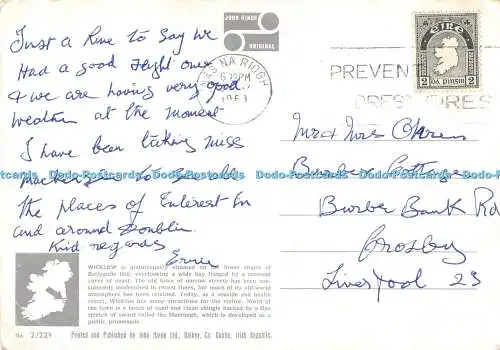 Just a line to say we
Had a good flight over
& we are having very good
weather at the moment
I have been taking miss
to see
the places of Interest In
and around Dublin
Kind regards
Ernie
JOHN HINDE
ORIGINAL
NA RIOGH
6 30PM
1961
PREVENT
FOREST FIRES
EIRE
2
2
Mr and Mrs
Cottage
Burbo Bank Rd
Crosby
Liverpool 23
WICKLOW is picturesquely situated on the lower slopes of
Ballyguile Hill, overlooking a wide bay fringed by a crescent
curve of coast. The old town of narrow streets has been con-
siderably modernised in recent times, but much of its old-world
atmosphere has been retained. Today, as a seaside and health
resort, Wicklow has many attractions for the visitor. North of
the town is a beach of sand and clean shingle backed by a fine
stretch of sward called the Murrough, which is developed as a
public promenade.
No. 2/229
Printed and Published by John Hinde Ltd., Dalkey, Co. Dublin, Irish Republic.
Dodo-Postcards